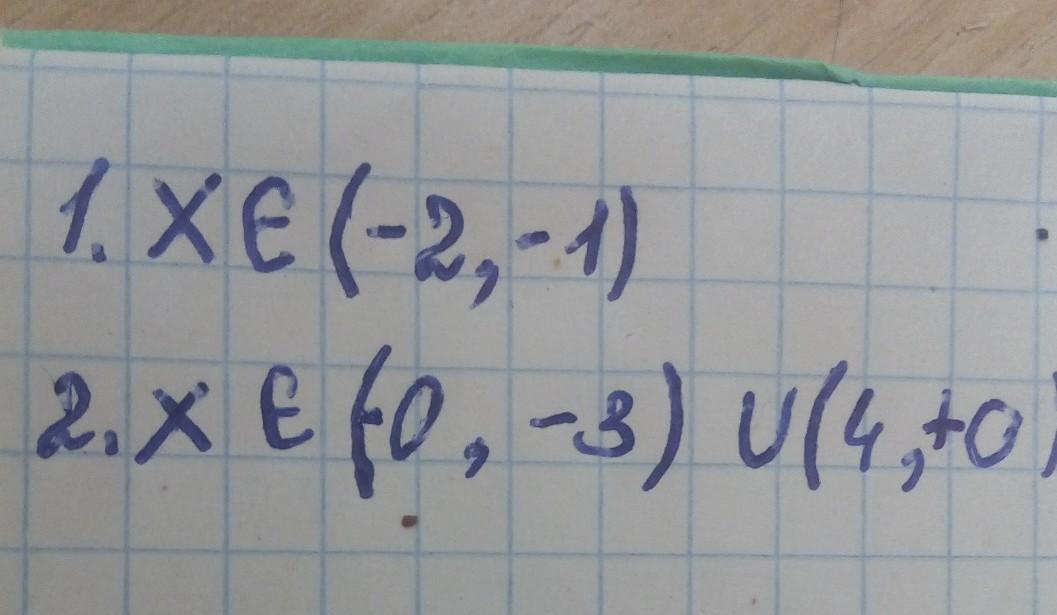 1. X ∈ (-2, -1)
2. X ∈ (-0, -3) ∪ (4, +0)